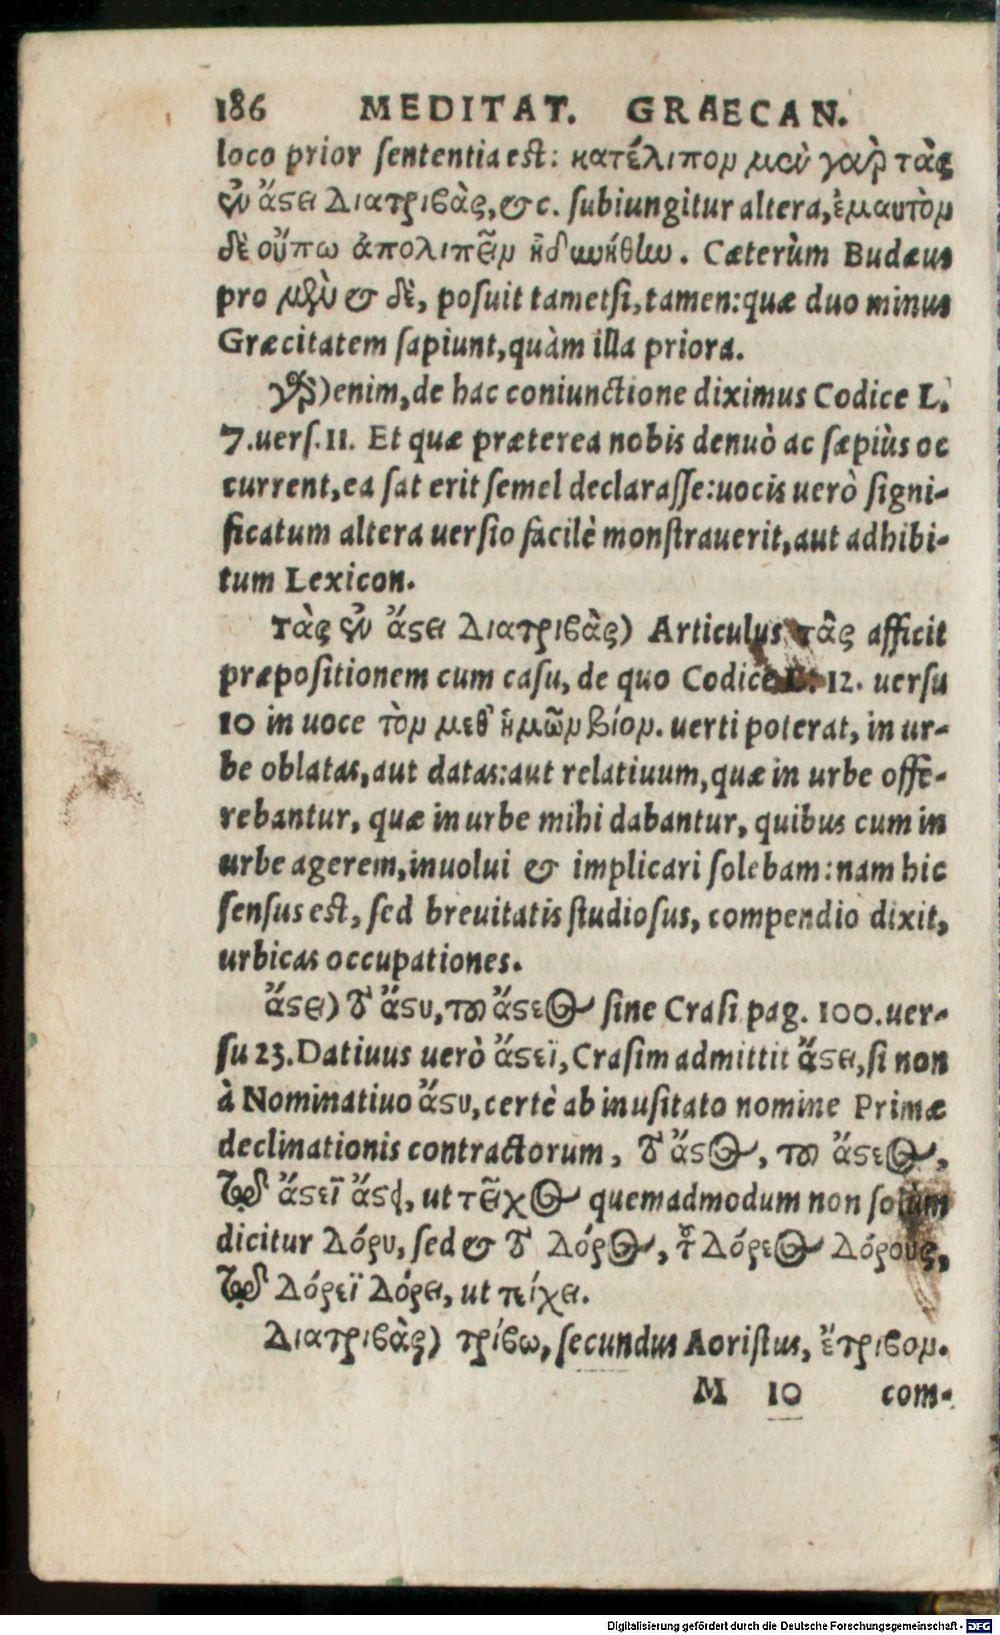 186 MEDITAT. GRAECAN.
loco prior sententia est: κατέλιπον μὲν γὰρ τὰς
ἐν ἄϛει διατριβὰς, &c. subiungitur altera, ἐμαυτὸν
δὲ οὔπω ἀπολιπεῖν ἠδυνήθην. Cæterùm Budæus
pro μὲν & δὲ, posuit tametsi, tamen: quæ duo minus
Græcitatem sapiunt, quàm illa priora.
γὰρ) enim, de hac coniunctione diximus Codice L.
7. uers. 11. Et quæ præterea nobis denuò ac sæpiùs oc
current, ea sat erit semel declarasse: uocis uerò signi-
ficatum altera uersio facilè monstrauerit, aut adhibi-
tum Lexicon.
τὰς ἐν ἄϛει διατριβὰς) Articulus τὰς afficit
præpositionem cum casu, de quo Codice 12. uersu
10 in uoce τὸν μεθ᾽ ἡμῶν βίον. uerti poterat, in ur-
be oblatas, aut datas: aut relatiuum, quæ in urbe offe-
rebantur, quæ in urbe mihi dabantur, quibus cum in
urbe agerem, inuolui & implicari solebam: nam hic
sensus est, sed breuitatis studiosus, compendio dixit,
urbicas occupationes.
ἄϛει) τὸ ἄϛυ, τοῦ ἄϛεος sine Crasi pag. 100. uer-
su 23. Datiuus uerò ἄϛεϊ, Crasim admittit ἄϛει, si non
à Nominatiuo ἄϛυ, certè ab inusitato nomine Primæ
declinationis contractorum, τὸ ἄϛος, τοῦ ἄϛεος,
τῷ ἄϛεϊ ἄϛει, ut τεῖχος quemadmodum non solùm
dicitur δόρυ, sed & τὸ δόρος, τοῦ δόρεος δόρους,
τῷ δόρεϊ δόρει, ut τείχει.
διατριβὰς) τρίβω, secundus Aoristus, ἔτριβον.
M 10 com-
Digitalisierung gefördert durch die Deutsche Forschungsgemeinschaft - DFG